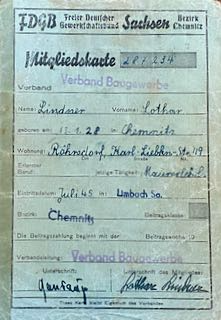 FDGB Freier Deutscher Gewerkschaftsbund Sachsen Bezirk Chemnitz
Mitgliedskarte 281234
Verband Verband Baugewerbe
Name: Lindner Vorname: Lothar
geboren am: 11.1.28 in Chemnitz
Wohnung: Röhrsdorf, Karl-Liebkn.-Str. 49
Ort Straße
Erlernter Beruf: Jetzige Tätigkeit:
Eintrittsdatum Juli 45 in Limbach Sa.
Bezirk: Chemnitz Beitragsklasse:
Die Beitragszahlung beginnt mit der Beitragswoche 19
Verbandsleitung: Verband Baugewerbe
Unterschrift: Unterschrift des Mitgliedes:
Lothar Lindner
Diese Karte bleibt Eigentum des Verbandes